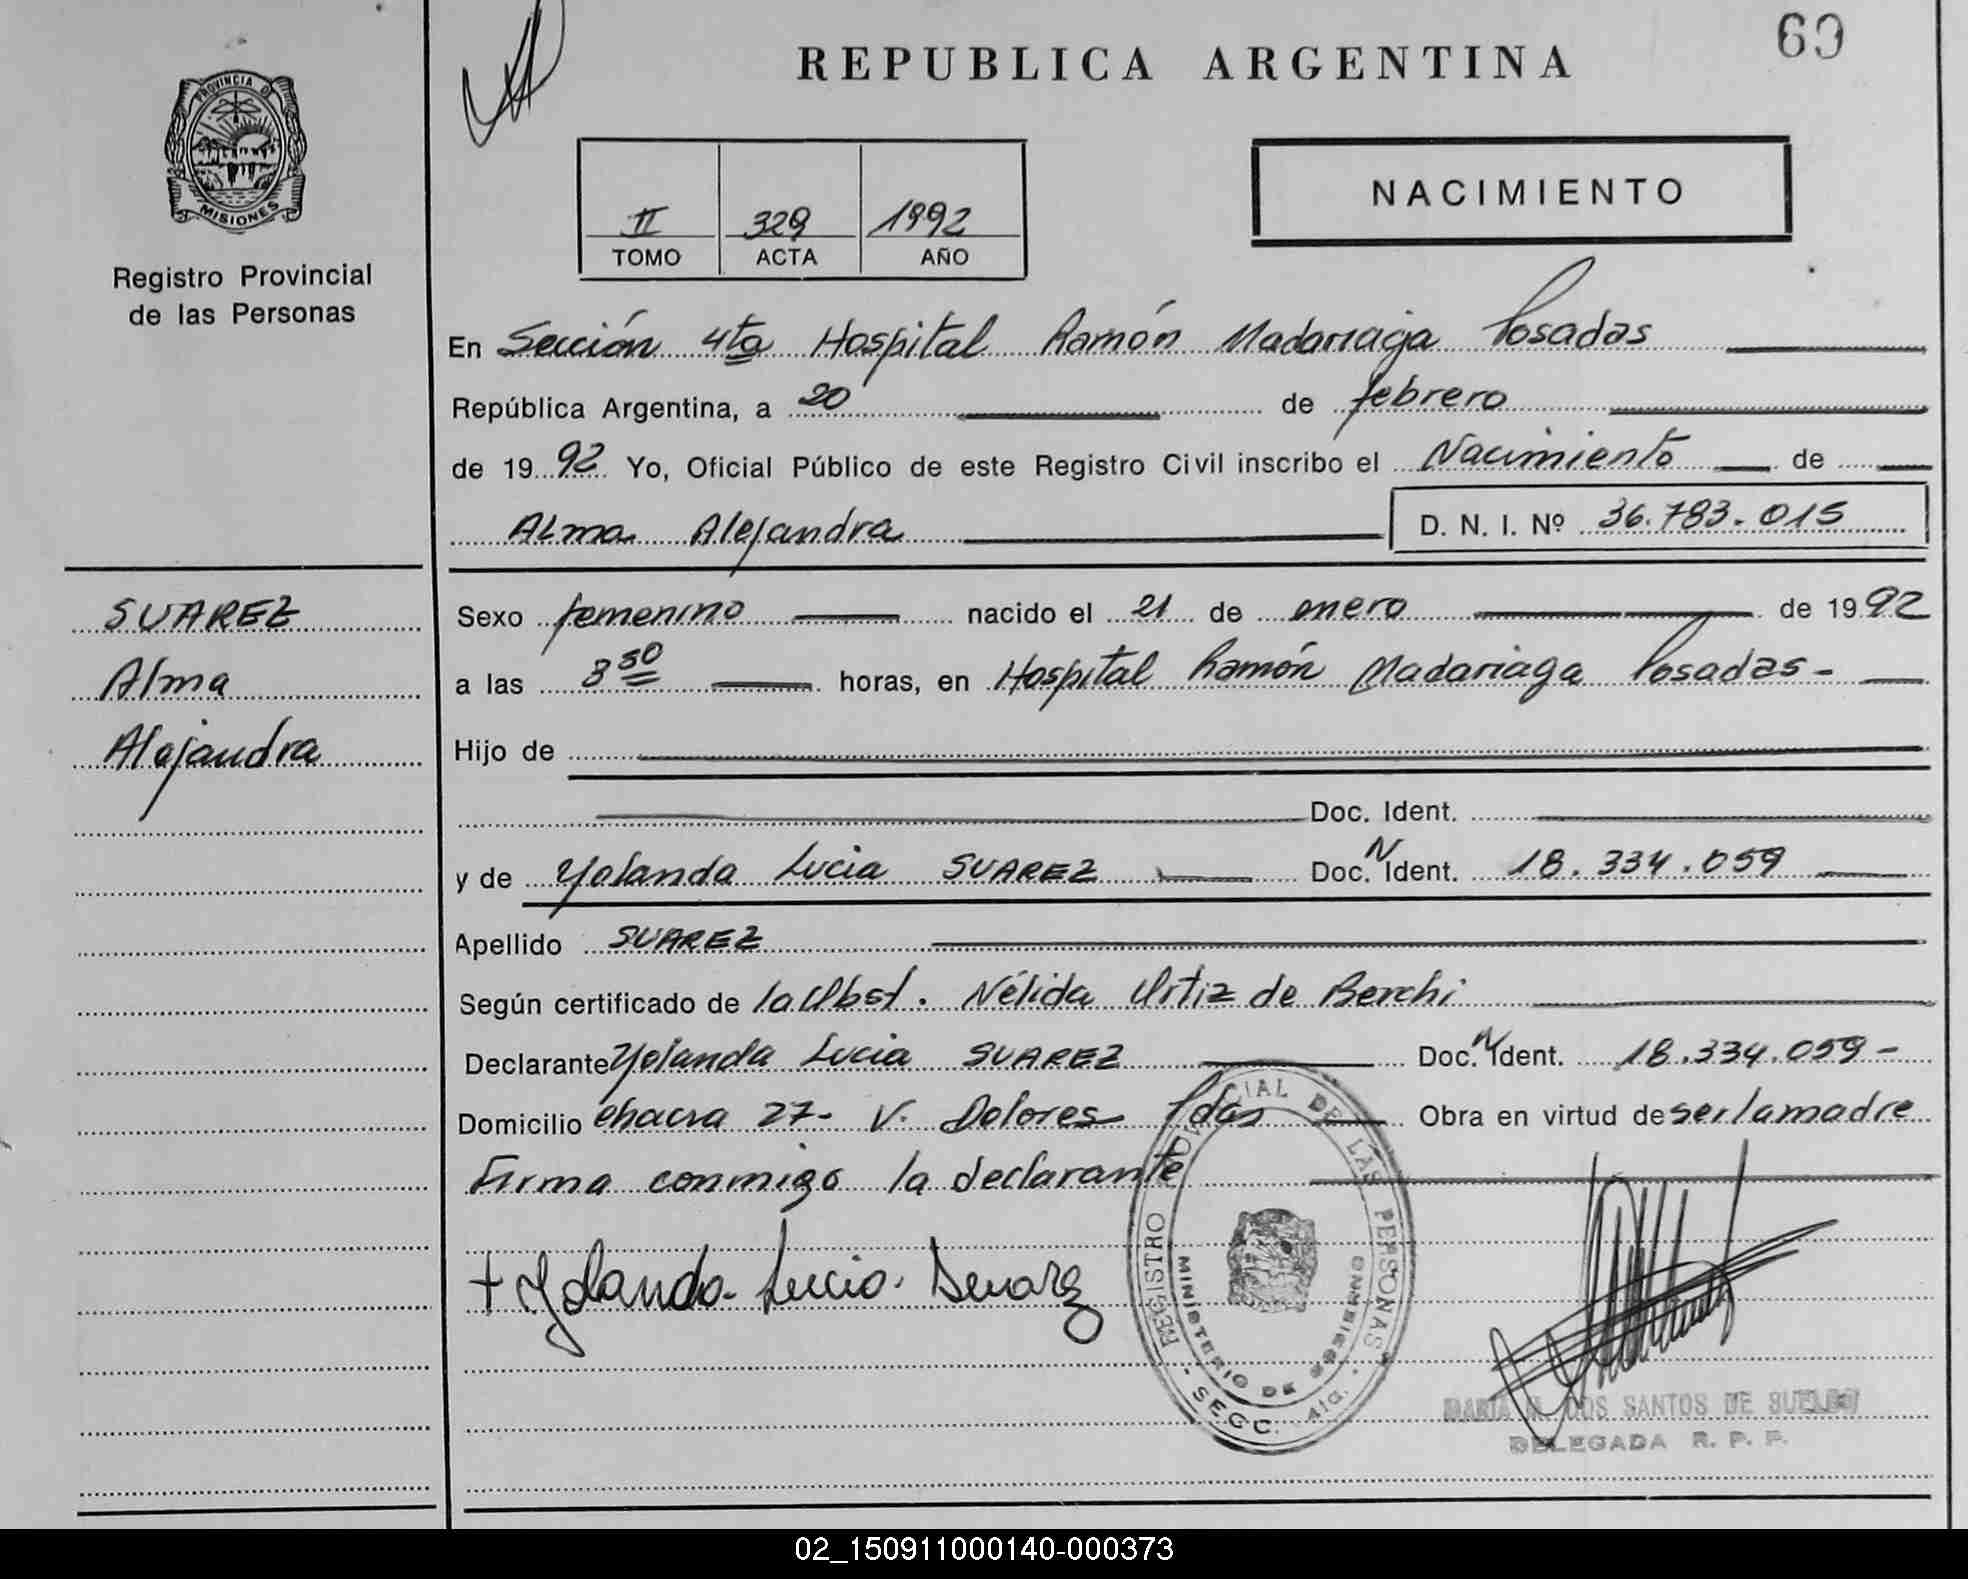 REPUBLICA ARGENTINA
60
PROVINCIA DE
MISIONES
Registro Provincial
de las Personas
II 329 1992
TOMO ACTA AÑO
NACIMIENTO
En Sección 4ta Hospital Ramón Madariaga Posadas
República Argentina, a 20 de febrero
de 1992 Yo, Oficial Público de este Registro Civil inscribo el Nacimiento de
Alma Alejandra D. N. I. Nº 36.783.015
SUAREZ
Alma
Alejandra
Sexo femenino nacido el 21 de enero de 1992
a las 8 30 horas, en Hospital Ramón Madariaga Posadas-
Hijo de
Doc. Ident.
y de Yolanda Lucia SUAREZ Doc. N Ident. 18.334.059
Apellido SUAREZ
Según certificado de la Obst. Nélida Ortiz de Berchi
Declarante Yolanda Lucia SUAREZ Doc. N Ident. 18.334.059-
Domicilio chacra 27- V. Dolores Pdas Obra en virtud de ser la madre
Firma conmigo la declarante
+ Yolanda Lucia Suarez
REGISTRO PROVINCIAL DE LAS PERSONAS
MINISTERIO DE GOBIERNO
SECC. 4ta.
MARIA DOS SANTOS DE
DELEGADA R. P. P.
02_150911000140-000373